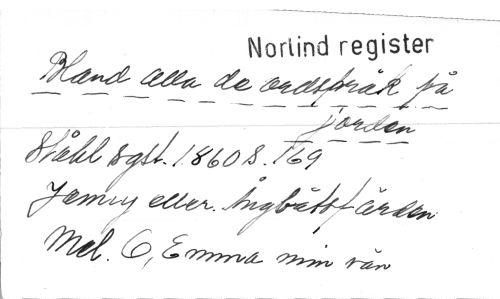 Norlind register
Bland alla de ordspråk på
jorden
Ståhl sgst. 1860 s. 169
Jenny eller Ångbåtsfärden
Mel. O, Emma min vän